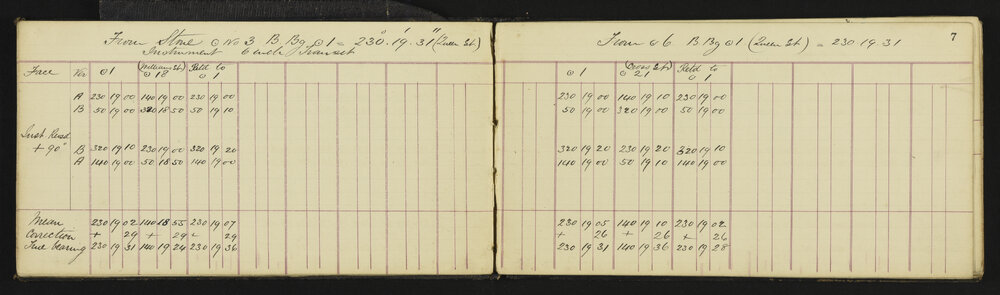 From Stone ⊙ No 3 B. Bg ⊙ 1 = 230° 19' 31" (Queen St.)
Instrument Transit
Face Ver ⊙ 1 (Williams St.) ⊙ 18 Retd to ⊙ 1
A 230 19 00 140 19 00 230 19 00
B 50 19 00 320 18 50 50 19 10
Inst. Revsd
+ 90°
B 320 19 10 230 19 00 320 19 20
A 140 19 00 50 18 50 140 19 00
Mean 230 19 02 140 18 55 230 19 07
Correction + 29 + 29 + 29
True bearing 230 19 31 140 19 24 230 19 36
7
From ⊙ 6 B Bg ⊙ 1 (Queen St.) = 230. 19. 31
⊙ 1 (Cross St.) ⊙ 21 Retd to ⊙ 1
230 19 00 140 19 10 230 19 00
50 19 00 320 19 00 50 19 00
320 19 20 230 19 20 320 19 10
140 19 00 50 19 10 140 19 00
230 19 05 140 19 10 230 19 02
+ 26 + 26 + 26
230 19 31 140 19 36 230 19 28